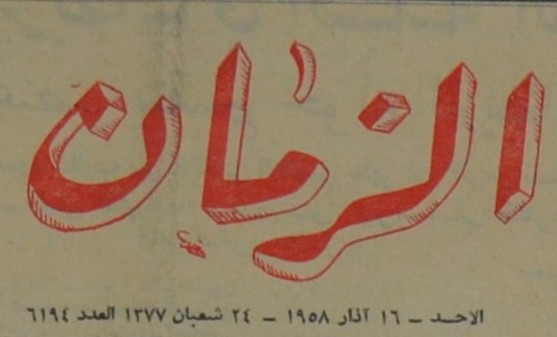 الزمان
الاحد – ١٦ آذار ١٩٥٨ – ٢٤ شعبان ١٣٧٧ العدد ٦١٩٤